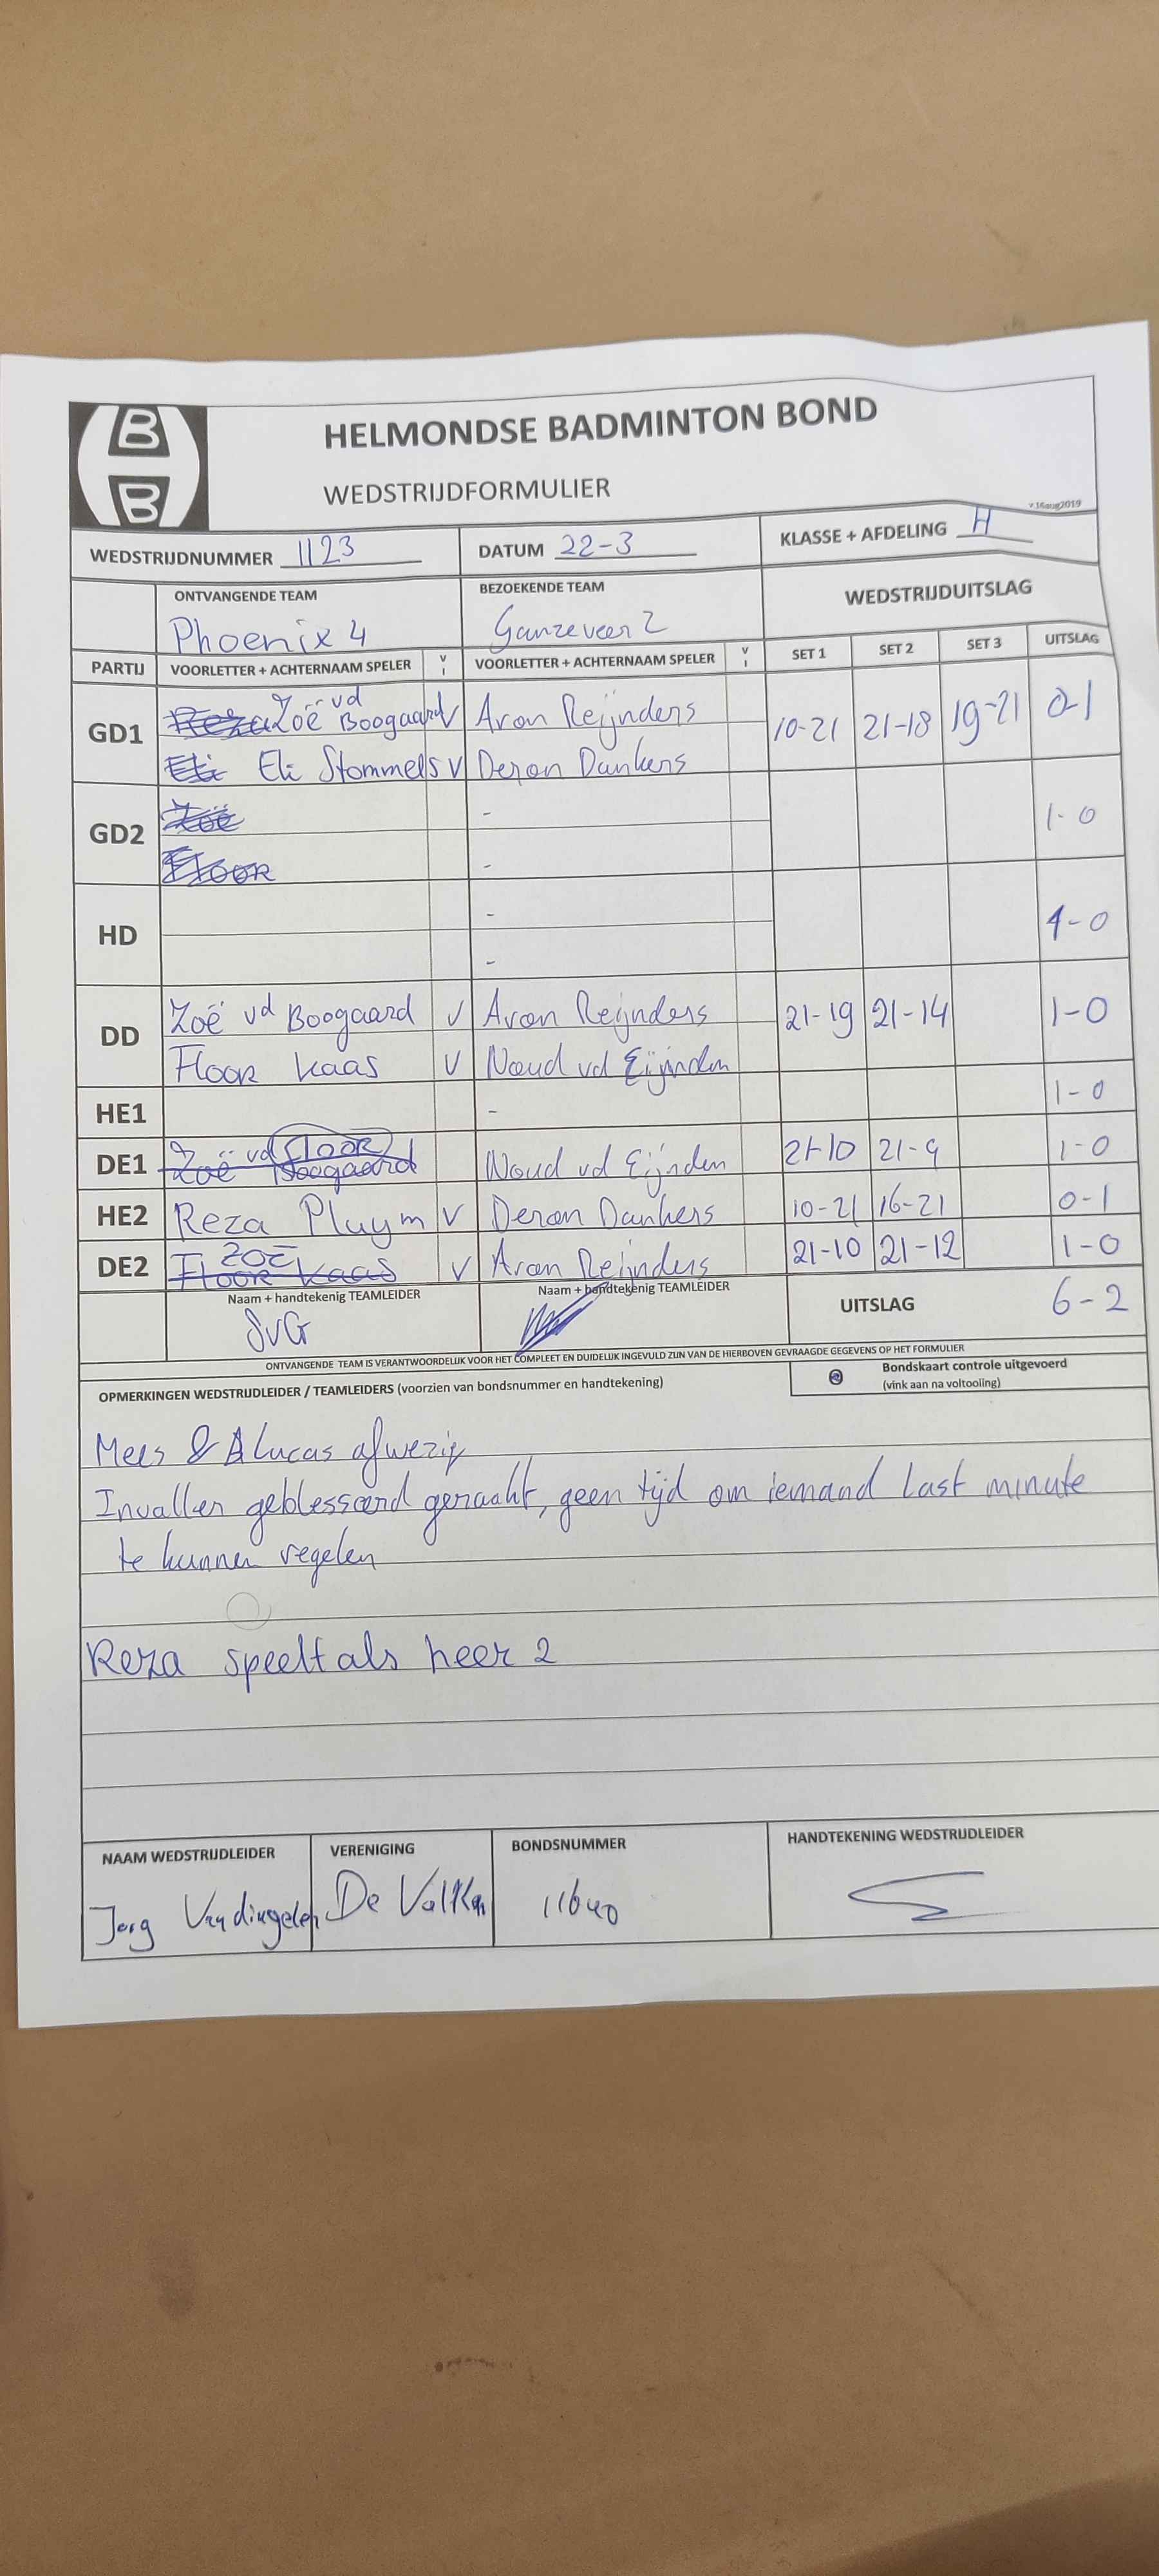 B
B
HELMONDSE BADMINTON BOND
WEDSTRIJDFORMULIER
v.16aug2019
WEDSTRIJDNUMMER 1123 DATUM 22-3 KLASSE + AFDELING H
ONTVANGENDE TEAM BEZOEKENDE TEAM WEDSTRIJDUITSLAG
Phoenix 4 Ganzeveer 2
PARTIJ VOORLETTER + ACHTERNAAM SPELER V I VOORLETTER + ACHTERNAAM SPELER V I SET 1 SET 2 SET 3 UITSLAG
GD1 Reza Zoë vd Boogaard V Aron Reijnders 10-21 21-18 19-21 0-1
Eli Eli Stommels V Deron Dankers
GD2 Zoë - 1-0
Floor -
HD - 1-0
-
DD Zoë vd Boogaard V Aron Reijnders 21-19 21-14 1-0
Floor Kaas V Noud vd Eijnden
HE1 - 1-0
DE1 Zoë vd Boogaard Floor Noud vd Eijnden 21-10 21-9 1-0
HE2 Reza Pluym V Deron Dankers 10-21 16-21 0-1
DE2 Floor Kaas Zoë V Aron Reijnders 21-10 21-12 1-0
Naam + handtekenig TEAMLEIDER Naam + handtekenig TEAMLEIDER UITSLAG 6-2
SvG
ONTVANGENDE TEAM IS VERANTWOORDELIJK VOOR HET COMPLEET EN DUIDELIJK INGEVULD ZIJN VAN DE HIERBOVEN GEVRAAGDE GEGEVENS OP HET FORMULIER
OPMERKINGEN WEDSTRIJDLEIDER / TEAMLEIDERS (voorzien van bondsnummer en handtekening) Bondskaart controle uitgevoerd
(vink aan na voltooiing)
Mees & Lucas afwezig
Invaller geblesseerd geraakt, geen tijd om iemand last minute
te kunnen regelen
Reza speelt als heer 2
NAAM WEDSTRIJDLEIDER VERENIGING BONDSNUMMER HANDTEKENING WEDSTRIJDLEIDER
Jorg De 11640